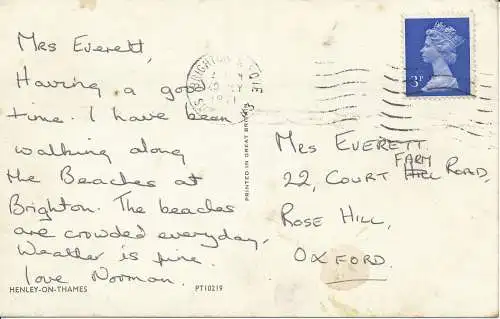 Mrs Everett,
Having a good
time. I have been
walking along
the Beaches at
Brighton. The beaches
are crowded everyday,
Weather is fine.
love Norman.
HENLEY-ON-THAMES
PT10219
PRINTED IN GREAT BRITAIN
BRIGHTON &
1971
3P
Mrs EVERETT
22, COURT FARM ROAD,
ROSE HILL,
OXFORD.